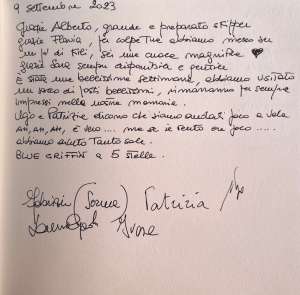 9 settembre 2023
Grazie Alberto, grande e preparato skipper
grazie Flavia, per colpa tua abbiamo messo su
un po' di Kili, sei una cuoca magnifica ♥
grazie Sara sempre disponibile e gentile
È stata una bellissima settimana, abbiamo visitato
un sacco di posti bellissimi, rimarranno per sempre
impressi nelle nostre memorie.
Ugo e Patrizia dicono che siamo andati poco a vela
AH, AH, AH, è vero .... ma se il vento era poco ....
abbiamo avuto tanto sole.
BLUE GRIFFIN a 5 stelle.
(Sorma) Patrizia Ugo
Ivone